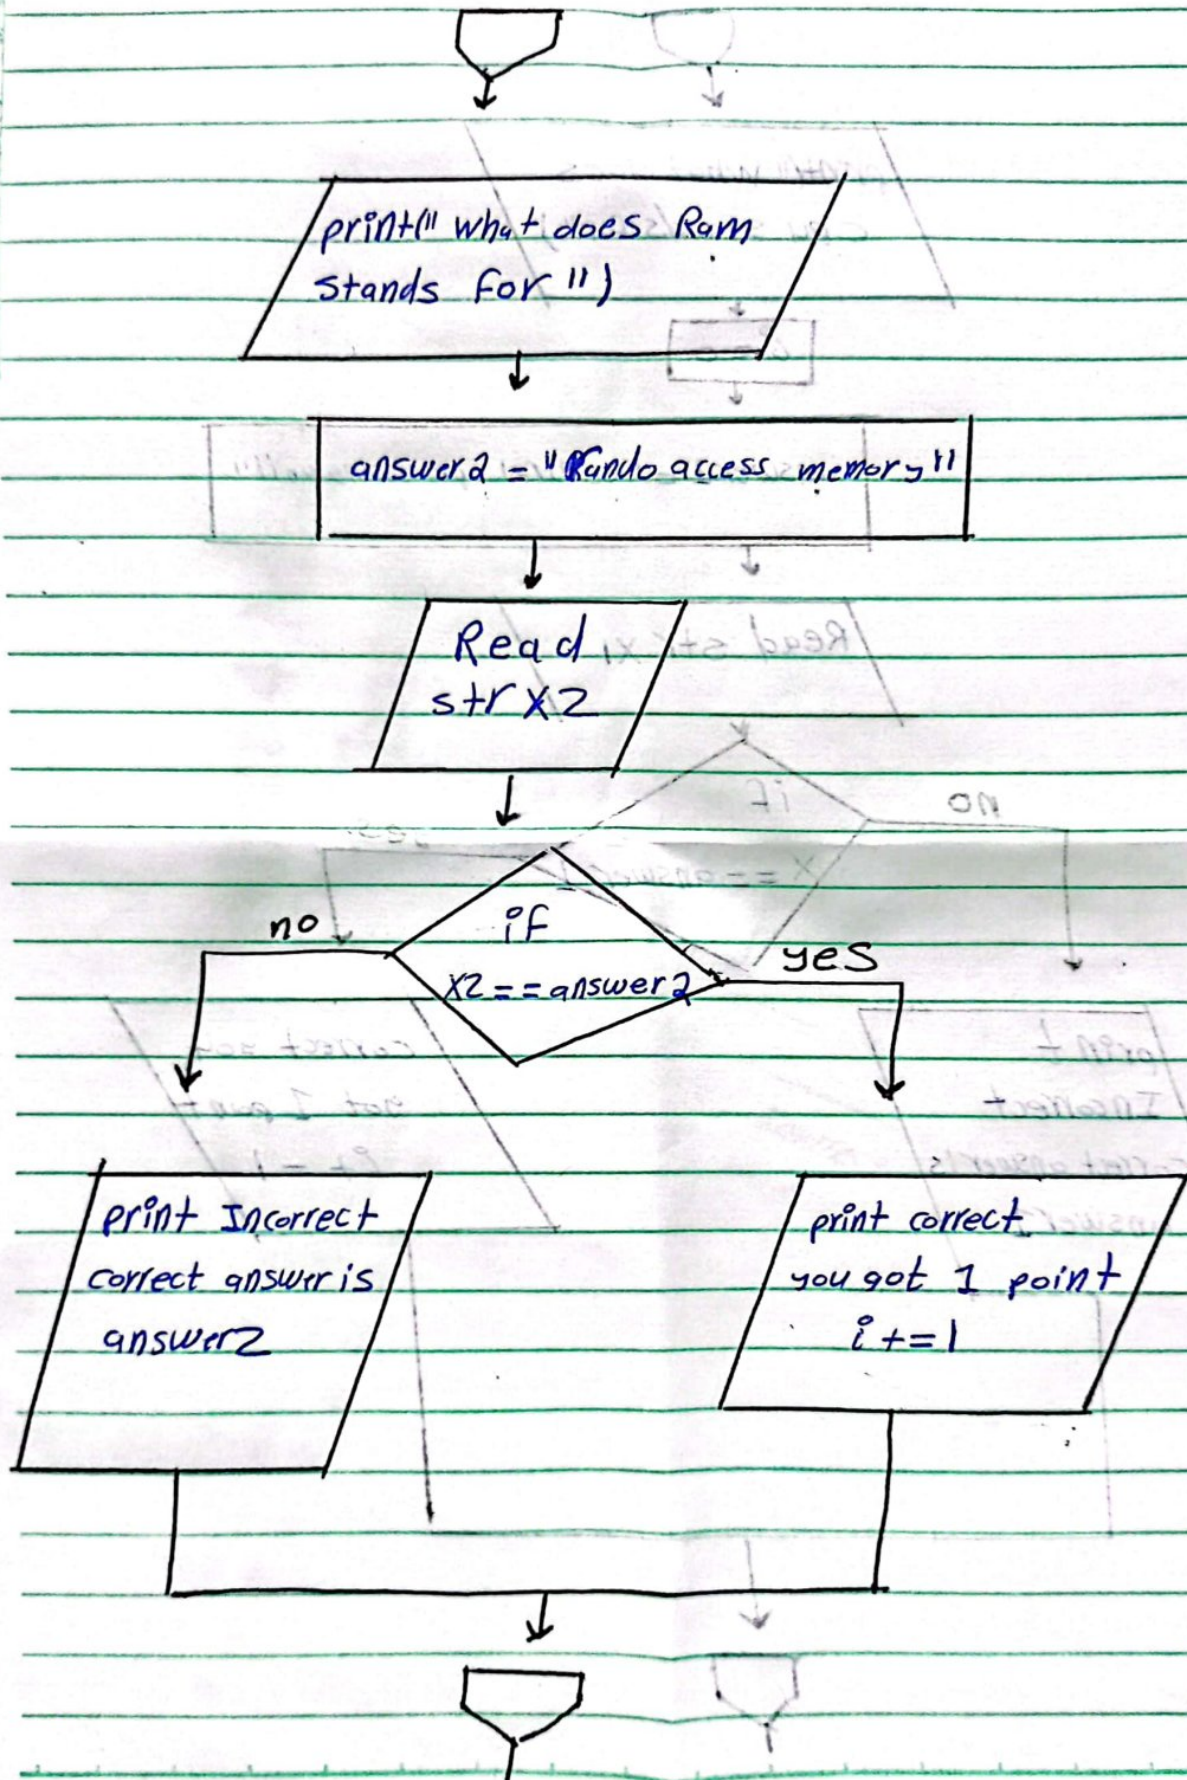 print(" what does Ram
stands for ")
answer2 = "Rando access memory"
Read
str x2
if
x2 == answer2
no
yes
print Incorrect
correct answer is
answer2
print correct
you got 1 point
i += 1